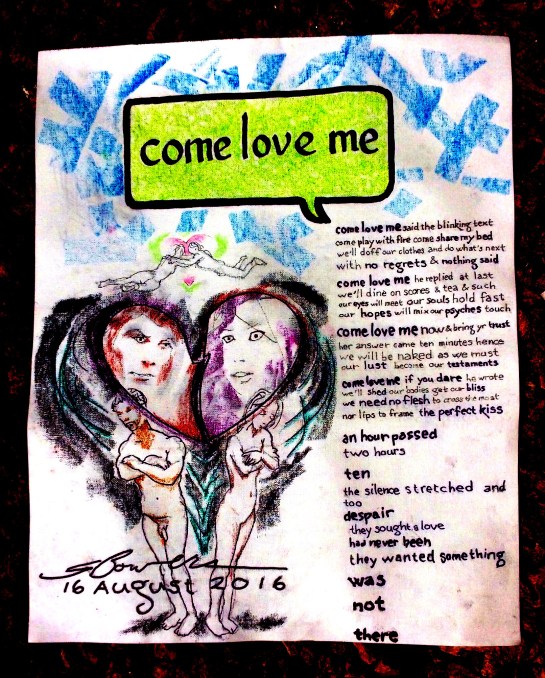 come love me
come love me said the blinking text
come play with fire come share my bed
we'll doff our clothes and do what's next
with no regrets & nothing said
come love me he replied at last
we'll dine on scores & tea & such
our eyes will meet our souls hold fast
our hopes will mix our psyches touch
come love me now & bring yr trust
her answer came ten minutes hence
we will be naked as we must
our lust become our testaments
come love me if you dare he wrote
we'll shed our bodies get our bliss
we need no flesh to cross the moat
nor lips to frame the perfect kiss
an hour passed
two hours
ten
the silence stretched and
too
despair
they sought & love
had never been
they wanted something
was
not
there
SBowers
16 August 2016